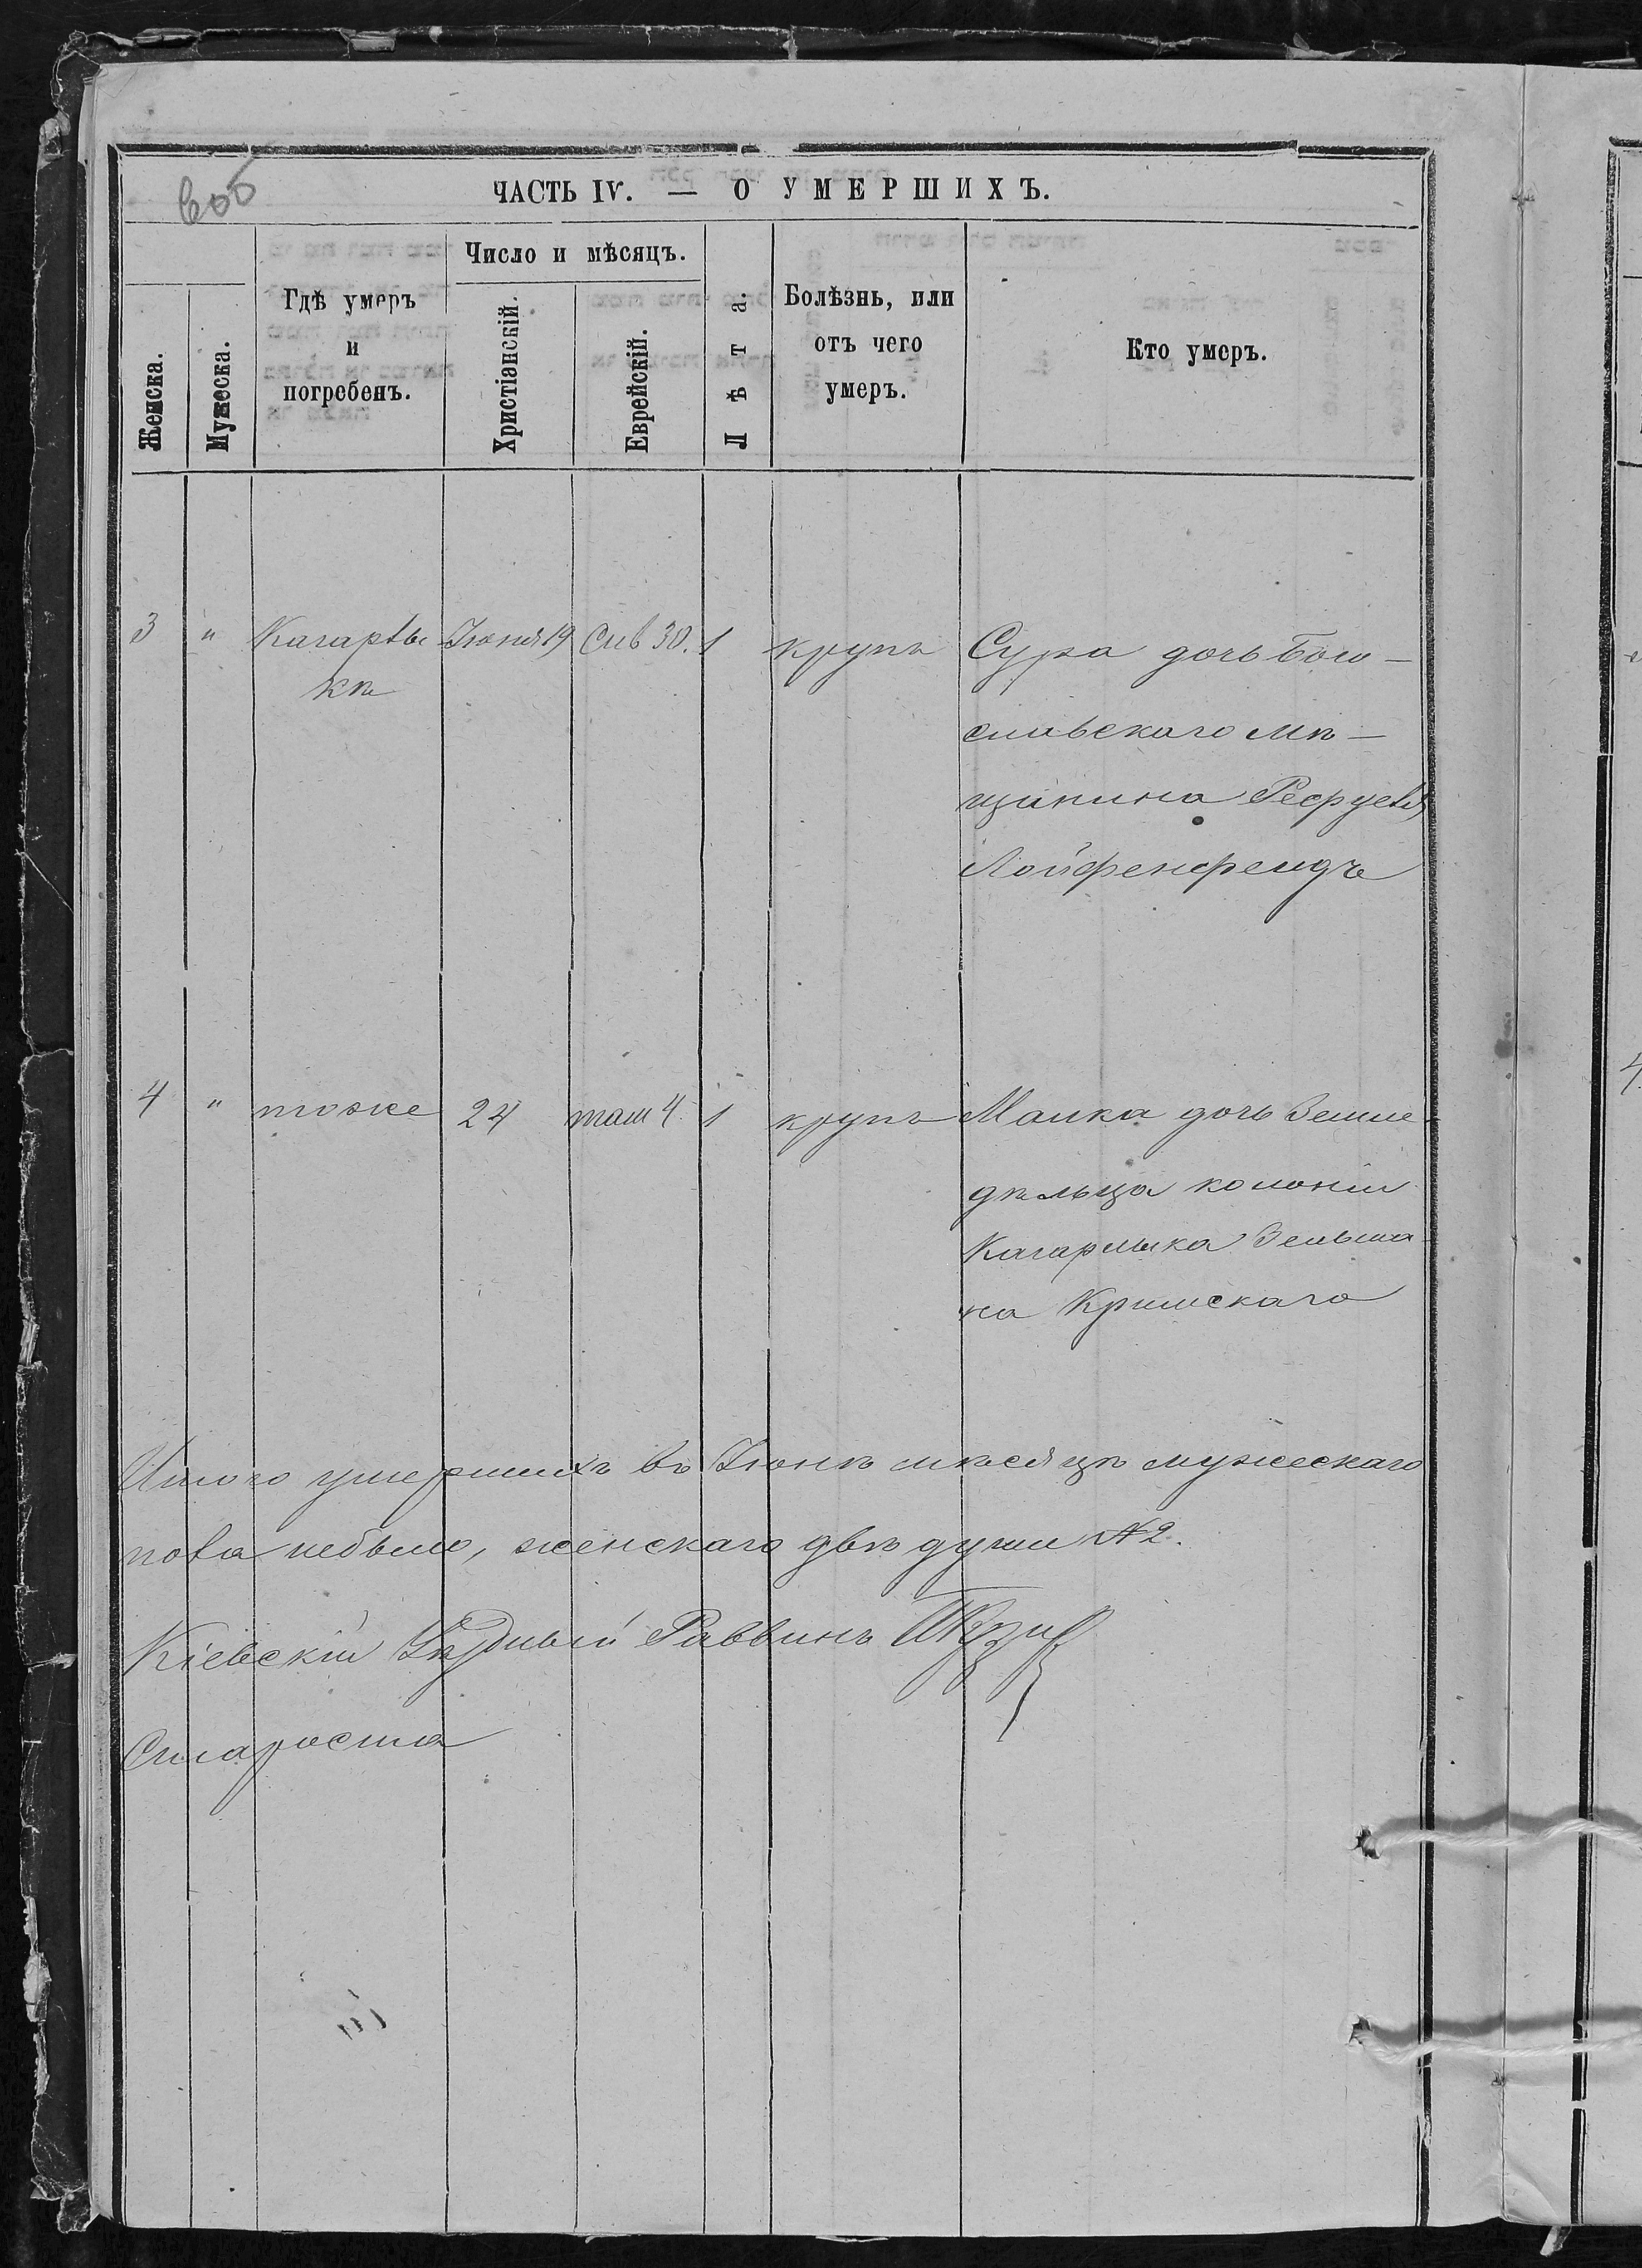 6об
ЧАСТЬ IV. — О УМЕРШИХЪ.
Женска.
Мужеска.
Гдѣ умеръ
и
погребенъ.
Число и мѣсяцъ.
Христіанскій.
Еврейскій.
Лѣта.
Болѣзнь, или
отъ чего
умеръ.
Кто умеръ.
3 " Кагарлы Іюня 19 Сив 30. 1 крупъ Сура дочь Бого-
кѣ
славского мѣ-
щанина
Лойфенфелдъ
4 " тоже 24 там 4. 1 крупъ Малка дочь Земле
дѣльца колоніи
Кагарлыка Зельма
на Кримскаго
Итого умершихъ въ Іюнѣ мѣсяцѣ мужескаго
пола небыло, женскаго двѣ души № 2.
Кіевскій Уѣздный Раввинъ
Староста